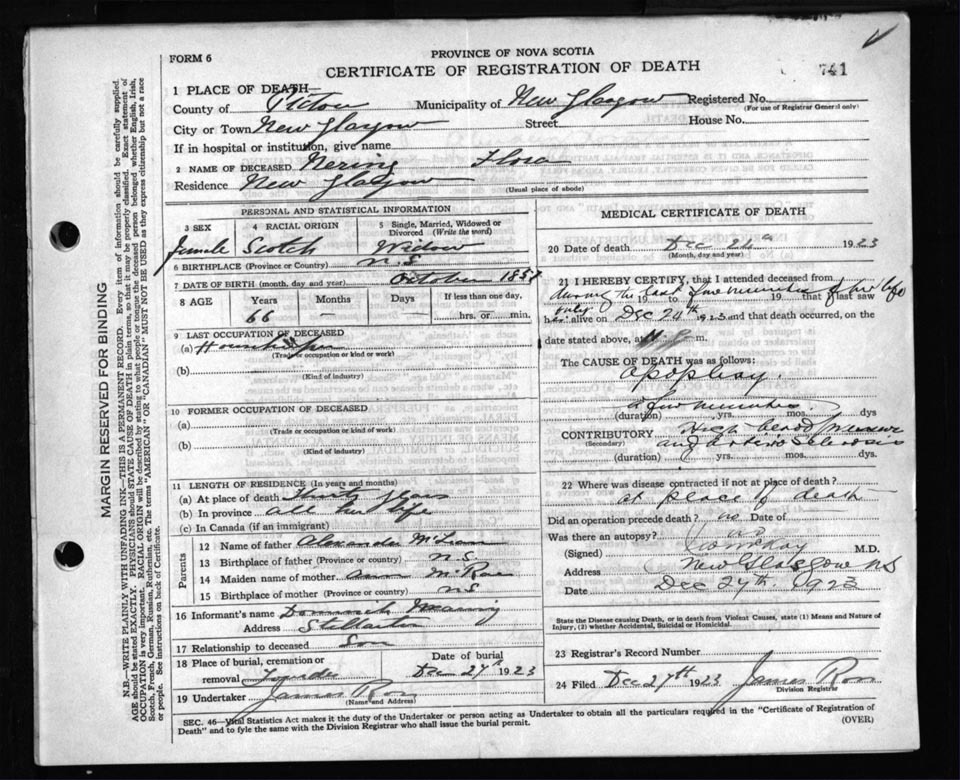 FORM 6
PROVINCE OF NOVA SCOTIA
CERTIFICATE OF REGISTRATION OF DEATH
741
1 PLACE OF DEATH—
County of Pictou Municipality of New Glasgow Registered No.
(For use of Registrar General only)
City or Town New Glasgow Street House No.
If in hospital or institution, give name
2 NAME OF DECEASED Flora
Residence New Glasgow
(Usual place of abode)
PERSONAL AND STATISTICAL INFORMATION
3 SEX 4 RACIAL ORIGIN 5 Single, Married, Widowed or Divorced (Write the word)
Female Scotch Widow
6 BIRTHPLACE (Province or Country) N.S
7 DATE OF BIRTH (month, day and year) October 1857
8 AGE Years Months Days If less than one day,
66 — — hrs. or min.
9 LAST OCCUPATION OF DECEASED
(a) Housekeeper
(Trade or occupation or kind of work)
(b)
(Kind of industry)
10 FORMER OCCUPATION OF DECEASED
(a)
(Trade or occupation or kind of work)
(b)
(Kind of industry)
11 LENGTH OF RESIDENCE (In years and months)
(a) At place of death Thirty years
(b) In province all her life
(c) In Canada (if an immigrant)
Parents
12 Name of father Alexander McLean
13 Birthplace of father (Province or country) N.S.
14 Maiden name of mother Ann McRae
15 Birthplace of mother (Province or country) N.S
16 Informant's name
Address Stellarton
17 Relationship to deceased Son
18 Place of burial, cremation or removal Date of burial
Dec 27th 1923
19 Undertaker James Ross
(Name and Address)
MEDICAL CERTIFICATE OF DEATH
20 Date of death Dec 24th 1923
(Month, day and year)
21 I HEREBY CERTIFY, that I attended deceased from
during the last few minutes of her life
19 to 19 that I last saw
only
her alive on Dec 24th 1923 and that death occurred, on the
date stated above, at m.
The CAUSE OF DEATH was as follows:
apoplexy.
a few minutes.
(duration) yrs. mos. dys
CONTRIBUTORY High blood pressure
(Secondary) and arterio sclerosis
(duration) yrs. mos. dys.
22 Where was disease contracted if not at place of death?
at place of death
Did an operation precede death? no Date of
Was there an autopsy? no
(Signed) M.D.
Address New Glasgow NS
Date Dec 27th. 1923
State the Disease causing Death, or in death from Violent Causes, state (1) Means and Nature of Injury, (2) whether Accidental, Suicidal or Homicidal.
23 Registrar's Record Number
24 Filed Dec 27th 1923 James Ross
Division Registrar
SEC. 46—Vital Statistics Act makes it the duty of the Undertaker or person acting as Undertaker to obtain all the particulars required in the "Certificate of Registration of
Death" and to fyle the same with the Division Registrar who shall issue the burial permit. (OVER)
MARGIN RESERVED FOR BINDING
N.B.—WRITE PLAINLY WITH UNFADING INK—THIS IS A PERMANENT RECORD. Every item of information should be carefully supplied.
AGE should be stated EXACTLY. PHYSICIANS should STATE CAUSE OF DEATH in plain terms, so that it may be properly classified. Exact statement of
OCCUPATION is very important. RACIAL ORIGIN will be described by stating to what people or tongue the deceased person belonged whether English, Irish,
Scotch, French, German, Russian, Ruthenian, etc. The terms "AMERICAN" OR "CANADIAN" MUST NOT BE USED as they express citizenship but not a race
or people. See instructions on back of Certificate.